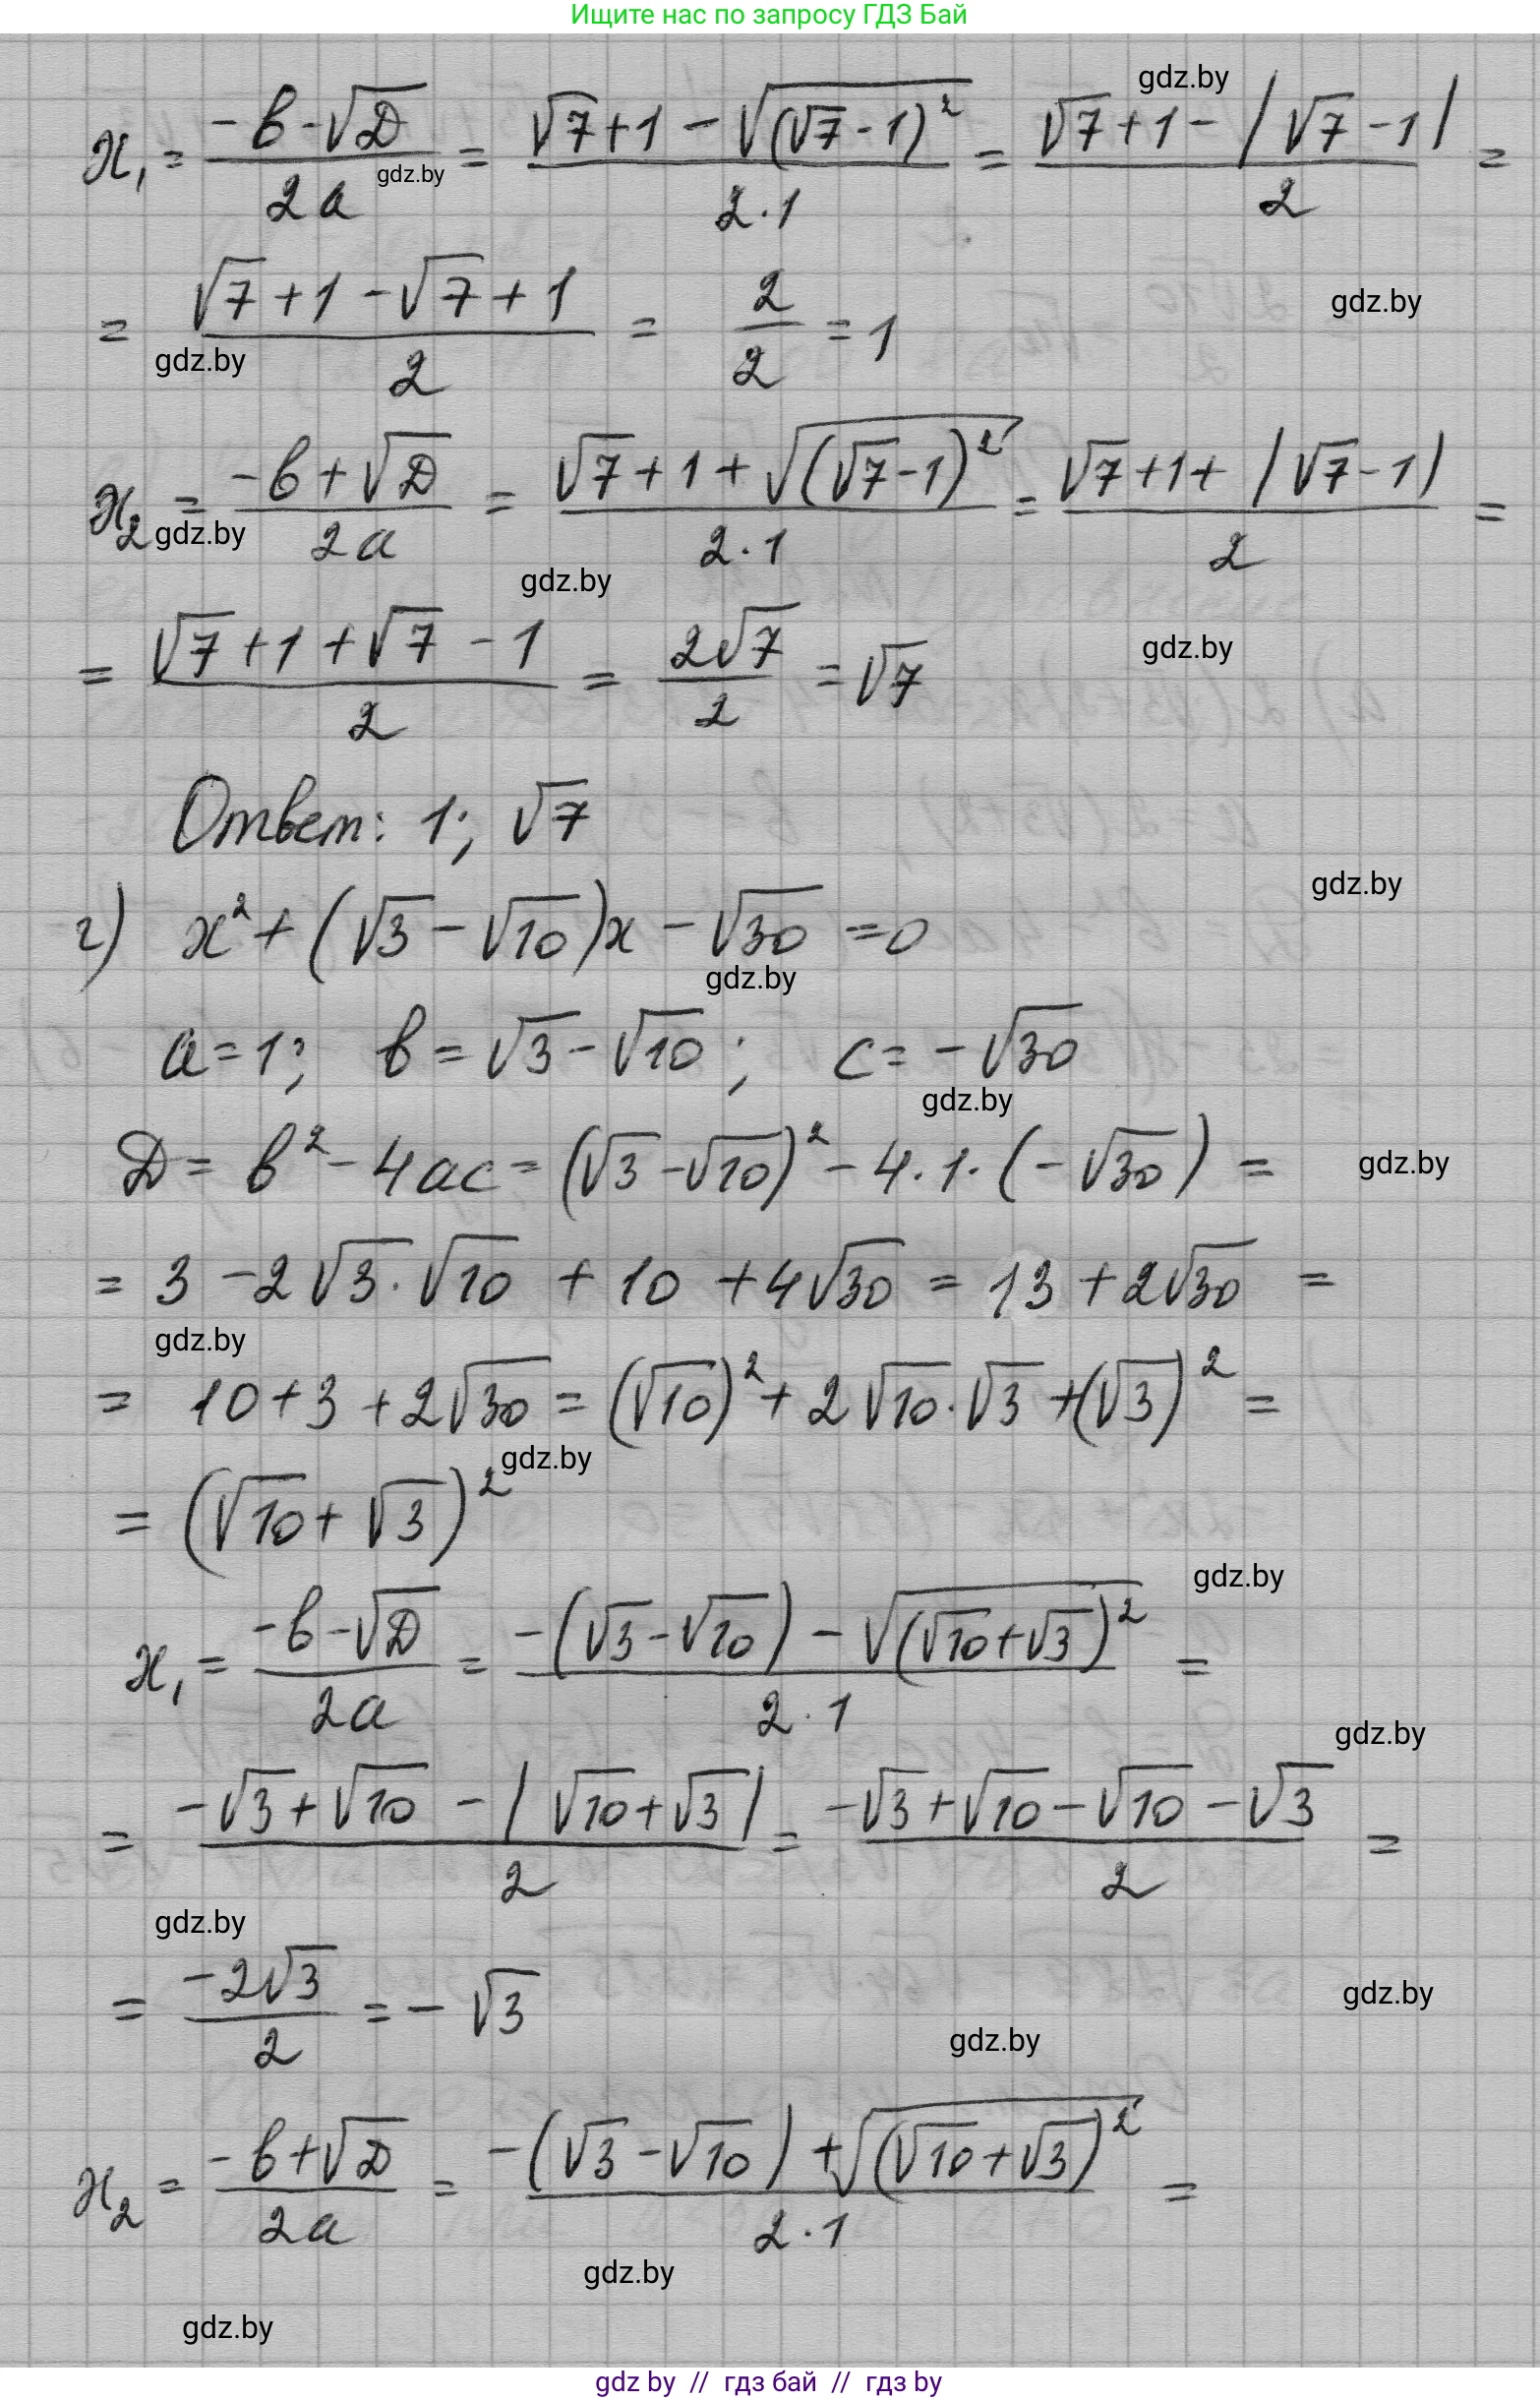 Ищите нас по запросу ГДЗ Бай
gdz.by
x₁ = (-b-√D)/(2a) = (√7+1-√((√7-1)²))/(2·1) = (√7+1-|√7-1|)/2 =
gdz.by
gdz.by
= (√7+1-√7+1)/2 = 2/2 = 1
gdz.by
x₂ = (-b+√D)/(2a) = (√7+1+√((√7-1)²))/(2·1) = (√7+1+|√7-1|)/2 =
gdz.by
gdz.by
= (√7+1+√7-1)/2 = 2√7/2 = √7
gdz.by
Ответ: 1; √7
gdz.by
г) x²+(√3-√10)x-√30=0
gdz.by
a=1; b=√3-√10; c=-√30
gdz.by
D=b²-4ac=(√3-√10)²-4·1·(-√30)=
gdz.by
= 3-2√3·√10+10+4√30=13+2√30=
gdz.by
= 10+3+2√30=(√10)²+2√10·√3+(√3)²=
gdz.by
= (√10+√3)²
gdz.by
x₁ = (-b-√D)/(2a) = (-(√3-√10)-√((√10+√3)²))/(2·1) =
gdz.by
= (-√3+√10-|√10+√3|)/2 = (-√3+√10-√10-√3)/2 =
gdz.by
= -2√3/2 = -√3
gdz.by
gdz.by
x₂ = (-b+√D)/(2a) = (-(√3-√10)+√((√10+√3)²))/(2·1) =
gdz.by
gdz.by
gdz by // гдз бай // гдз by